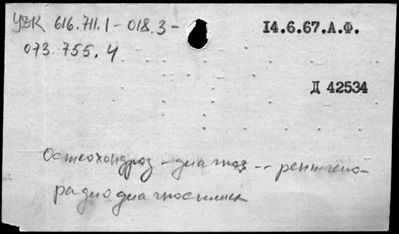 УДК 616.711.1-018.3-
073.755.4
14.6.67.А.Ф.
Д 42534
Остеохондроз - диагноз -- рентгено-
радиодиагностика